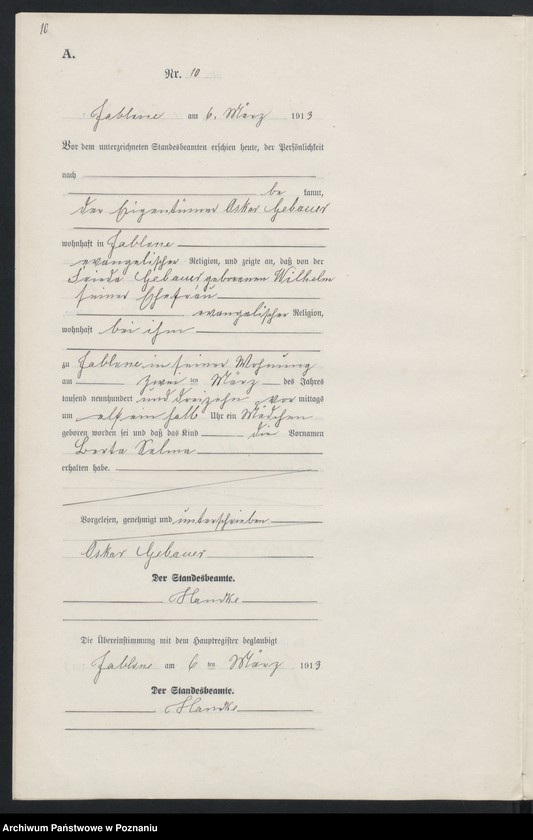 10
A.
Nr. 10
Jablone am 6. März 1913
Vor dem unterzeichneten Standesbeamten erschien heute, der Persönlichkeit
nach
be kannt,
der Eigentümer Oskar Gebauer
wohnhaft in Jablone
evangelischer Religion, und zeigte an, daß von der
Frieda Gebauer geborenen Wilhelm
seiner Ehefrau
evangelischer Religion,
wohnhaft bei ihm
zu Jablone in seiner Wohnung
am zwei ten März des Jahres
tausend neunhundert und dreizehn vor mittags
um elf ein halb Uhr ein Mädchen
geboren worden sei und daß das Kind die Vornamen
Berta Selma
erhalten habe.
Vorgelesen, genehmigt und unterschrieben
Oskar Gebauer
Der Standesbeamte.
Handke
Die Übereinstimmung mit dem Hauptregister beglaubigt
Jablone am 6 ten März 1913
Der Standesbeamte.
Handke
Archiwum Państwowe w Poznaniu